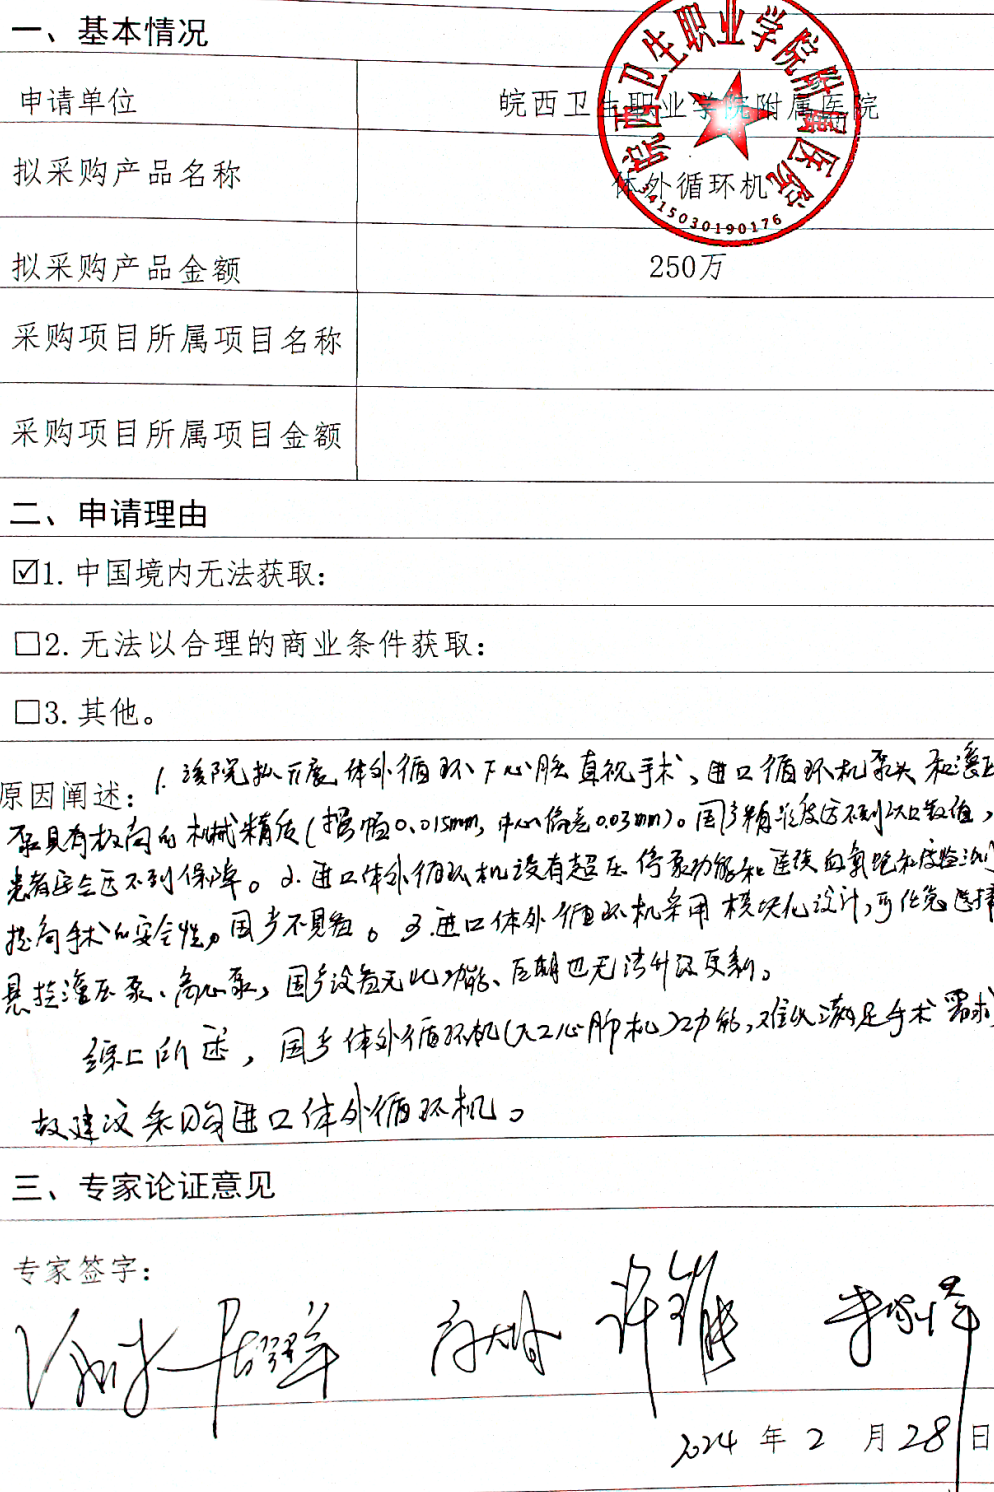 一、基本情况
申请单位 皖西卫生职业学院附属医院
皖西卫生职业学院附属医院
拟采购产品名称 体外循环机
3415030190176
拟采购产品金额 250万
采购项目所属项目名称
采购项目所属项目金额
二、申请理由
☑1.中国境内无法获取：
□2.无法以合理的商业条件获取：
□3.其他。
原因阐述：1.该院拟开展体外循环下心脏直视手术，进口循环机泵头和灌注
泵具有极高的机械精度（振幅0.015mm，中心偏差0.03mm）。国产精准度达不到以上数值，
患者安全得不到保障。2.进口体外循环机设有超压停泵功能和连续血氧饱和度监测
提高手术的安全性，国产不具备。3.进口体外循环机采用模块化设计，可任意选择
悬挂灌注泵、离心泵，国产设备无此功能、后期也无法升级更新。
综上所述，国产体外循环机（人工心肺机）功能，难以满足手术需求
故建议采购进口体外循环机。
三、专家论证意见
专家签字：
2024年2月28日